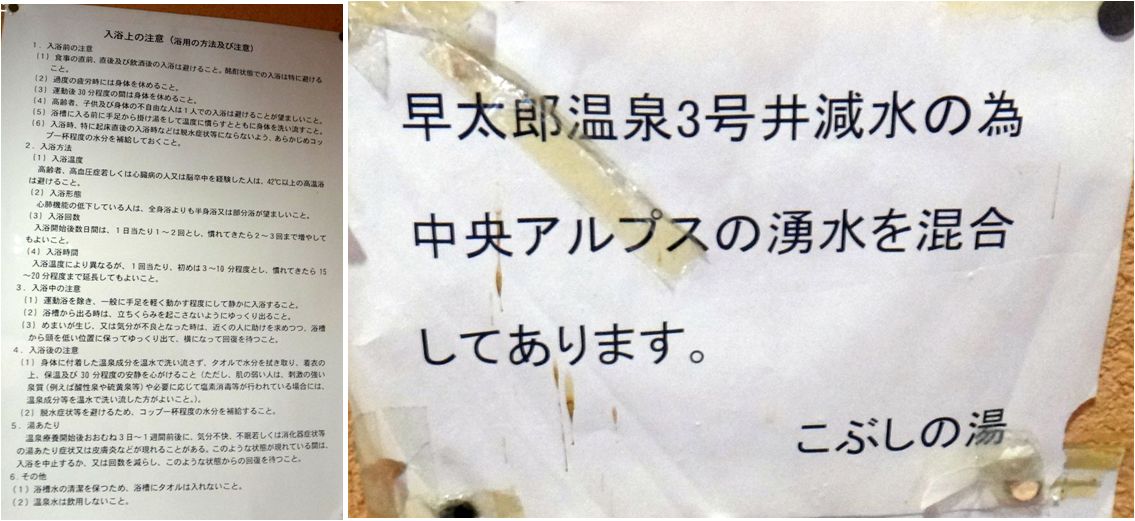 入浴上の注意（浴用の方法及び注意）
１．入浴前の注意
（１）食事の直前、直後及び飲酒後の入浴は避けること。酩酊状態での入浴は特に避ける
こと。
（２）過度の疲労時には身体を休めること。
（３）運動後30分程度の間は身体を休めること。
（４）高齢者、子供及び身体の不自由な人は１人での入浴は避けることが望ましいこと。
（５）浴槽に入る前に手足から掛け湯をして温度に慣らすとともに身体を洗い流すこと。
（６）入浴時、特に起床直後の入浴時などは脱水症状等にならないよう、あらかじめコッ
プ一杯程度の水分を補給しておくこと。
２．入浴方法
（１）入浴温度
高齢者、高血圧症若しくは心臓病の人又は脳卒中を経験した人は、42℃以上の高温浴
は避けること。
（２）入浴形態
心肺機能の低下している人は、全身浴よりも半身浴又は部分浴が望ましいこと。
（３）入浴回数
入浴開始後数日間は、１日当たり１～２回とし、慣れてきたら２～３回まで増やして
もよいこと。
（４）入浴時間
入浴温度により異なるが、１回当たり、初めは３～10分程度とし、慣れてきたら15
～20分程度まで延長してもよいこと。
３．入浴中の注意
（１）運動浴を除き、一般に手足を軽く動かす程度にして静かに入浴すること。
（２）浴槽から出る時は、立ちくらみを起こさないようにゆっくり出ること。
（３）めまいが生じ、又は気分が不良となった時は、近くの人に助けを求めつつ、浴槽
から頭を低い位置に保ってゆっくり出て、横になって回復を待つこと。
４．入浴後の注意
（１）身体に付着した温泉成分を温水で洗い流さず、タオルで水分を拭き取り、着衣の
上、保温及び30分程度の安静を心がけること（ただし、肌の弱い人は、刺激の強い
泉質（例えば酸性泉や硫黄泉等）や必要に応じて塩素消毒等が行われている場合には、
温泉成分等を温水で洗い流した方がよいこと。）。
（２）脱水症状等を避けるため、コップ一杯程度の水分を補給すること。
５．湯あたり
温泉療養開始後おおむね３日～１週間前後に、気分不快、不眠若しくは消化器症状等
の湯あたり症状又は皮膚炎などが現れることがある。このような状態が現れている間は、
入浴を中止するか、又は回数を減らし、このような状態からの回復を待つこと。
６．その他
（１）浴槽水の清潔を保つため、浴槽にタオルは入れないこと。
（２）温泉水は飲用しないこと。
早太郎温泉3号井減水の為
中央アルプスの湧水を混合
してあります。
こぶしの湯